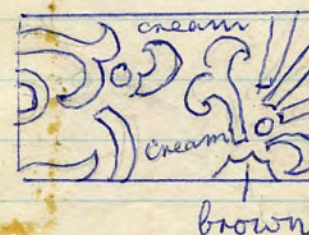 cream
cream
brown